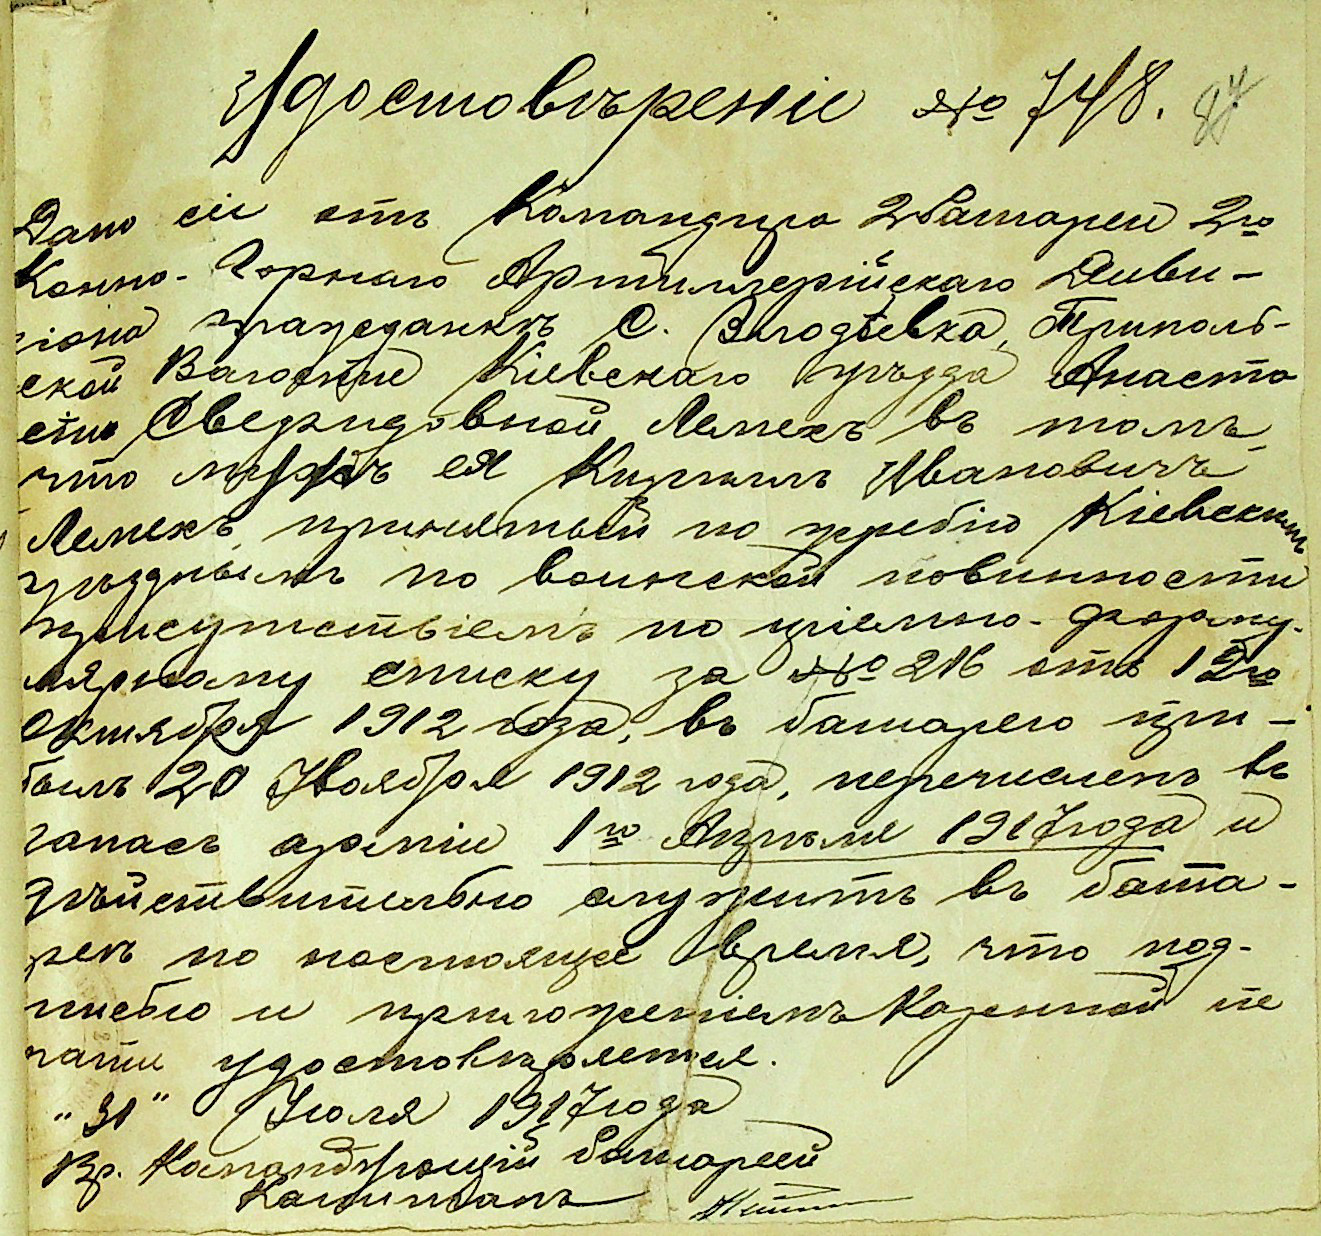 Удостовѣреніе № 748. 87
Дано сіе отъ Командира 2 батареи 2го
Конно-Горнаго Артиллерійскаго Диви-
зіона гражданкѣ С. Злодѣевка, Триполь-
ской Волости Кіевскаго уѣзда Анаста
сіи Свиридовной Лемехъ въ томъ,
что мужъ ея Кириллъ Ивановичъ
Лемехъ, принятый по жребію Кіевскимъ
уѣзднымъ по воинской повинности
присутствіемъ по пріемно-форму-
лярному списку за № 216 отъ 12го
Октября 1912 года, въ батарею при-
былъ 20 Ноября 1912 года, перечисленъ въ
запасъ арміи 1го Апрѣля 1917 года и
дѣйствительно служитъ въ бата-
реѣ по настоящее время, что под-
писью и приложеніемъ Казенной пе
чати удостовѣряется.
"31" Іюля 1917 года
Вр. Командующій батареей
Капитанъ